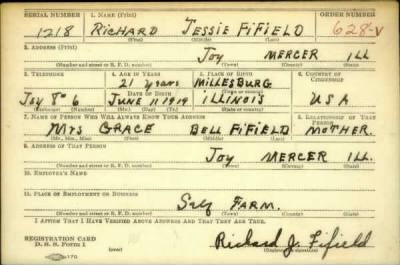 SERIAL NUMBER 1. NAME (Print) ORDER NUMBER
1218 RICHARD JESSIE FIFIELD 628-V
(First) (Middle) (Last)
2. ADDRESS (Print)
JOY MERCER ILL
(Number and street or R. F. D. number) (Town) (County) (State)
3. TELEPHONE 4. AGE IN YEARS 5. PLACE OF BIRTH 6. COUNTRY OF CITIZENSHIP
21 years MILLESBURG
DATE OF BIRTH (Town or county)
Joy 8-6 JUNE 11 1919 ILLINOIS USA
(Exchange) (Number) (Mo.) (Day) (Yr.) (State or country)
7. NAME OF PERSON WHO WILL ALWAYS KNOW YOUR ADDRESS 8. RELATIONSHIP OF THAT PERSON
MRS GRACE BELL FIFIELD MOTHER.
(Mr., Mrs., Miss) (First) (Middle) (Last)
9. ADDRESS OF THAT PERSON
JOY MERCER ILL.
(Number and street or R. F. D. number) (Town) (County) (State)
10. EMPLOYER'S NAME
11. PLACE OF EMPLOYMENT OR BUSINESS
Self FARM.
(Number and street or R. F. D. number) (Town) (County) (State)
I AFFIRM THAT I HAVE VERIFIED ABOVE ANSWERS AND THAT THEY ARE TRUE.
REGISTRATION CARD
D. S. S. Form 1 (over) Richard J. Fifield